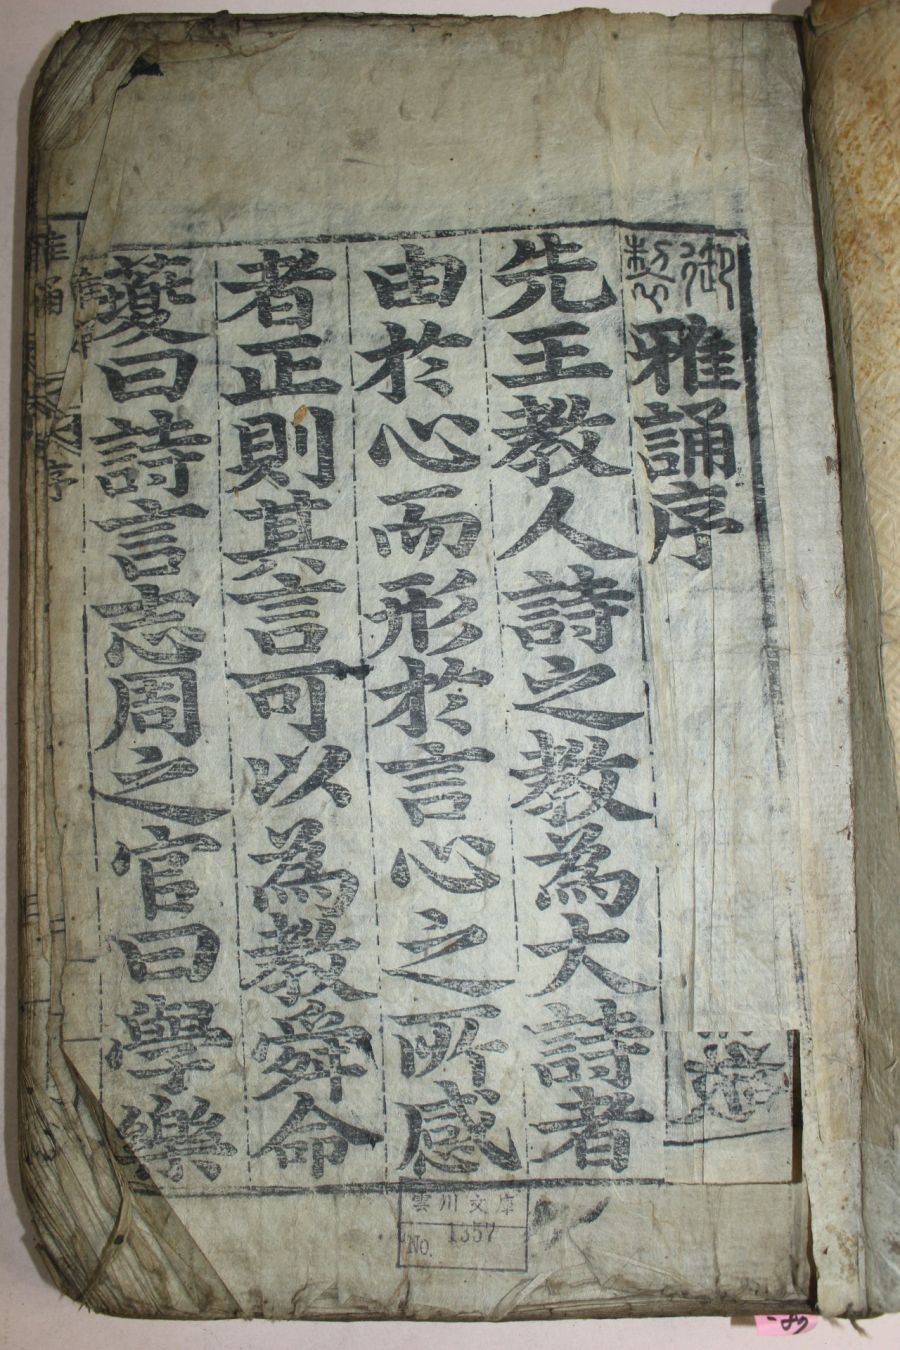 御製雅誦序
先王教人詩之教為大詩者
由於心而形於言心之所感
者正則其言可以為教舜命
夔曰詩言志周之官曰學樂
雲川文庫
No. 1357